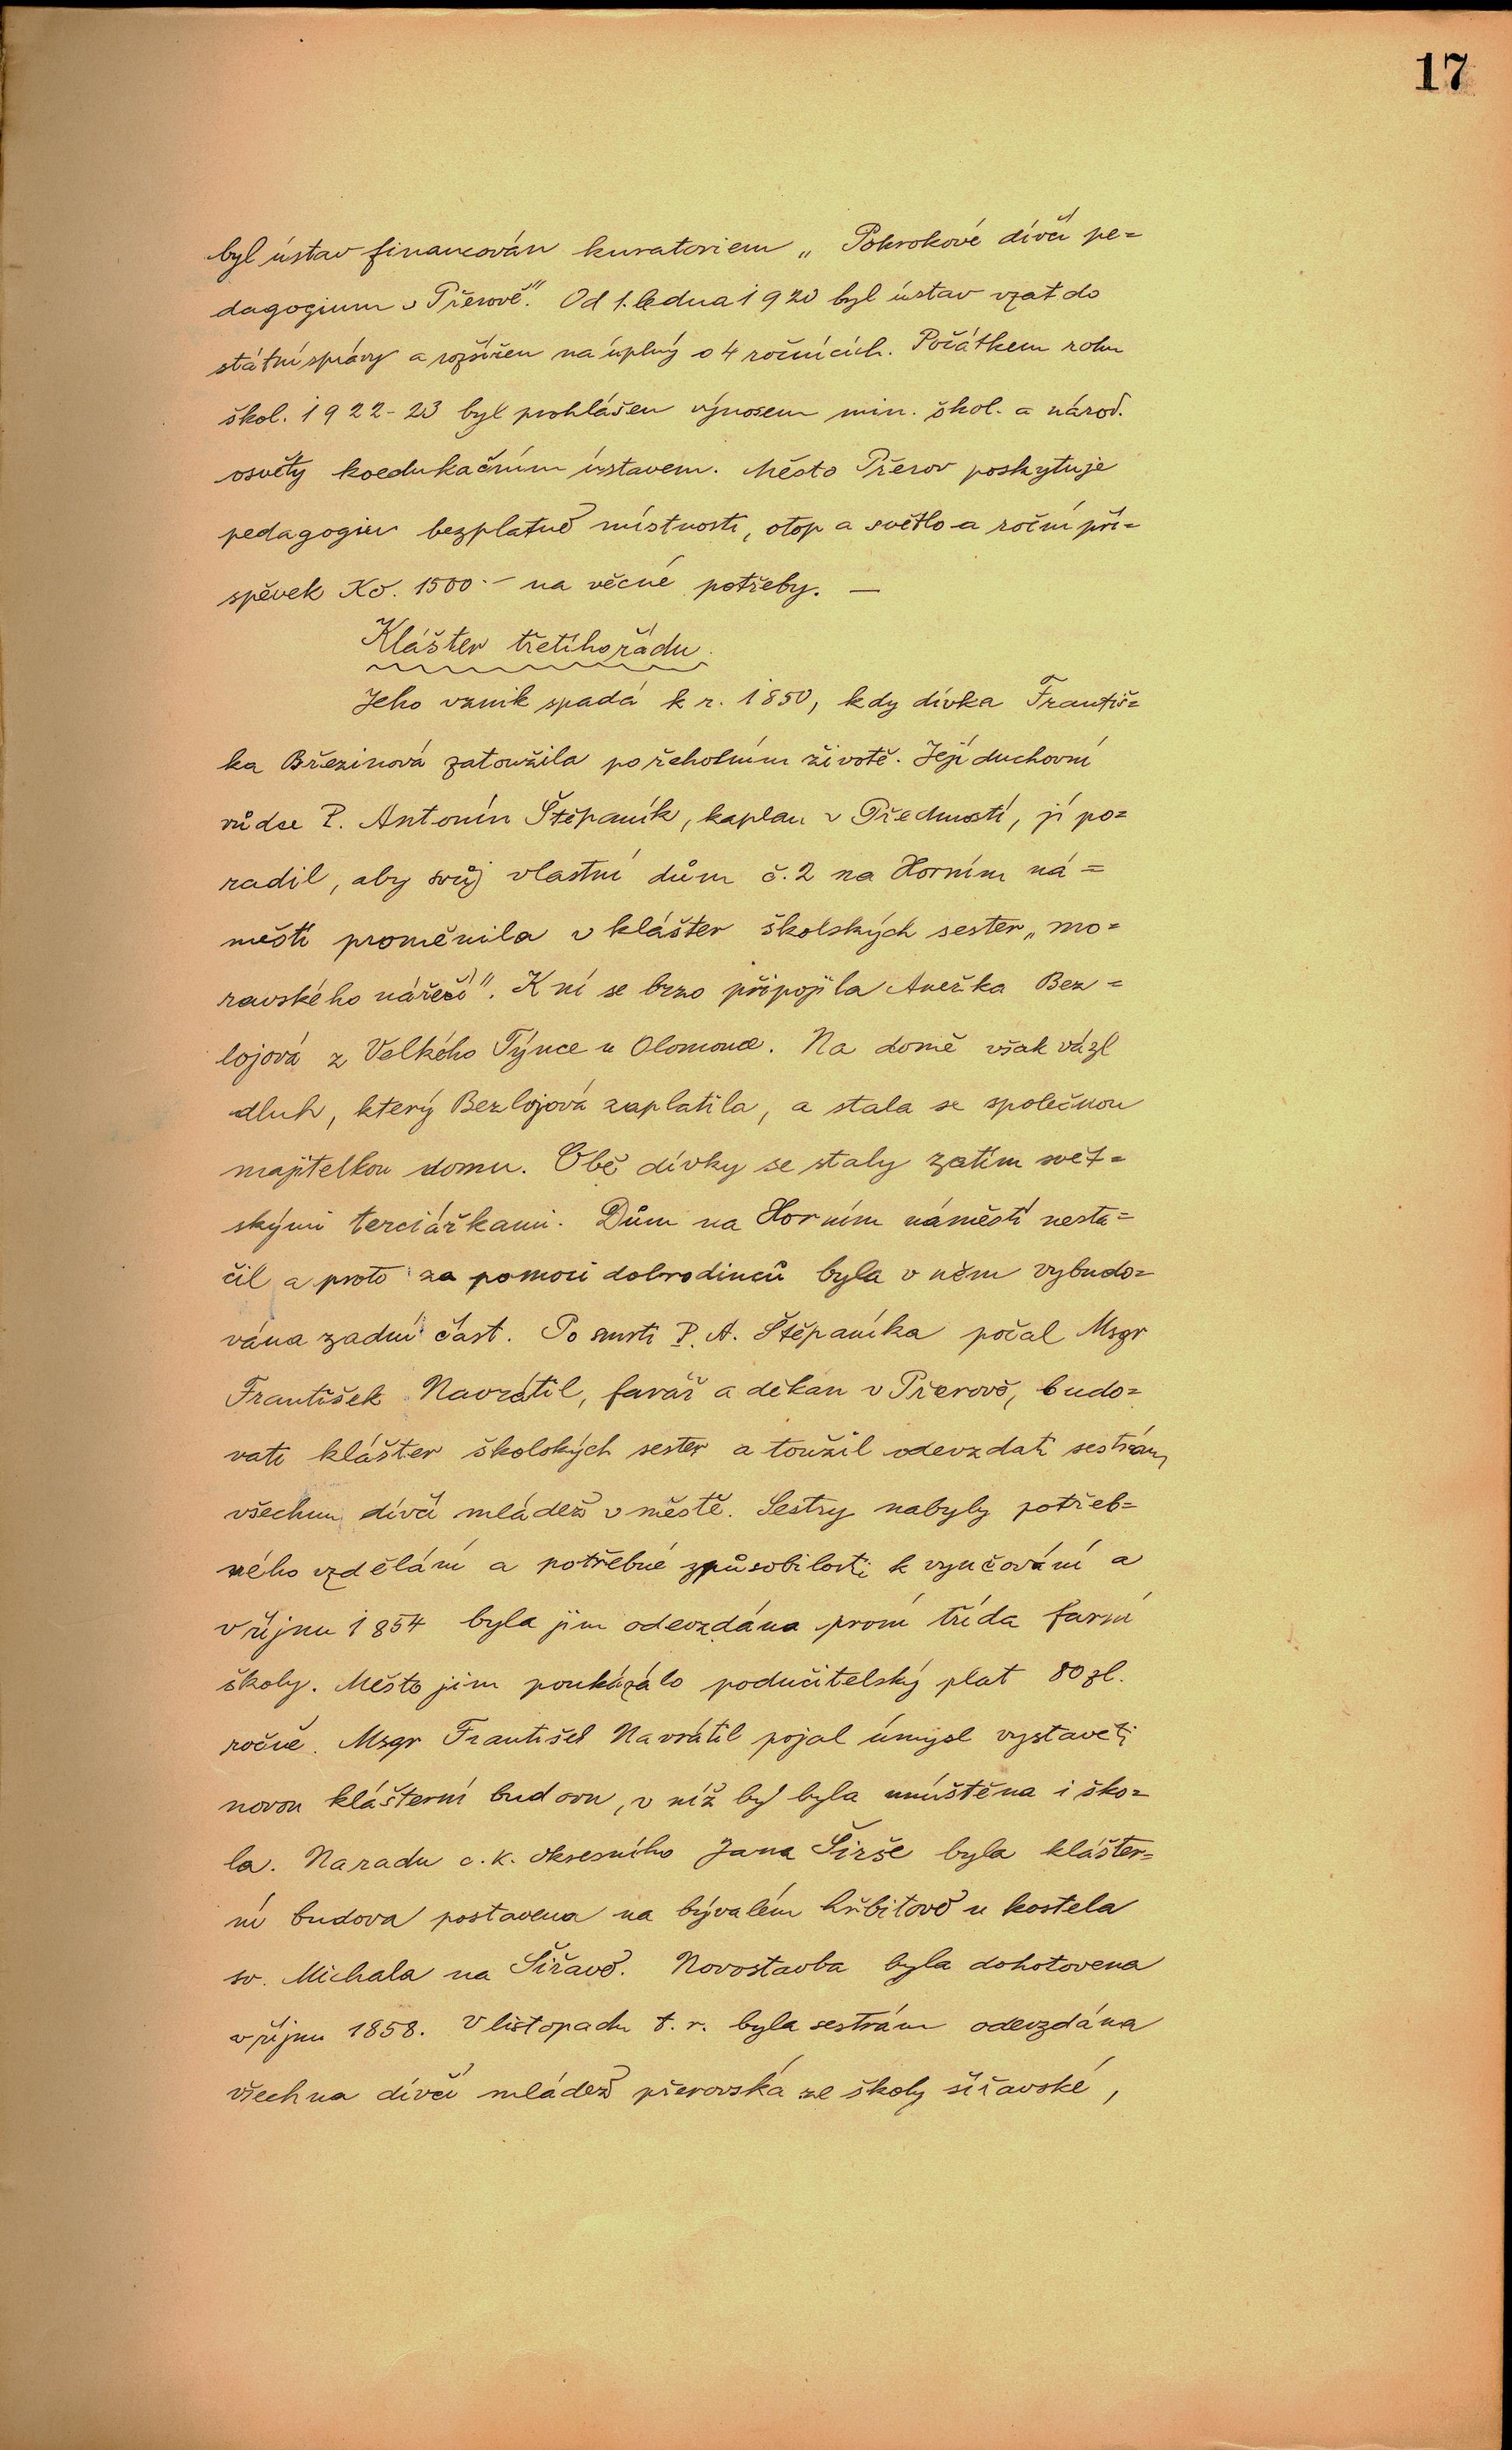 17
byl ústav financován kuratoriem „Pokrokové dívčí pe=
dagogium v Přerově." Od 1. ledna 1920 byl ústav vzat do
státní správy a rozšířen na úplný o 4 ročnících. Počátkem roku
škol. 1922-23 byl prohlášen výnosem min. škol. a národ.
osvěty koedukačním ústavem. Město Přerov poskytuje
pedagogiu bezplatně místnosti, otop a světlo a roční pří=
spěvek Kč. 1500·- na věcné potřeby. —
Klášter třetího řádu.
Jeho vznik spadá k r. 1850, kdy dívka Františ=
ka Březinová zatoužila po řeholním životě. Její duchovní
vůdce P. Antonín Štěpaník, kaplan v Předmostí, jí po=
radil, aby svůj vlastní dům č. 2 na Horním ná=
městí proměnila v klášter školských sester „mo=
ravského nářečí". K ní se brzo připojila Anežka Bez=
lojová z Velkého Týnce u Olomouce. Na domě však vázl
dluh, který Bezlojová zaplatila, a stala se společnou
majitelkou domu. Obě dívky se staly zatím svět=
skými terciářkami. Dům na Horním náměstí nesta=
čil a proto za pomoci dobrodinců byla v něm vybudo=
vána zadní část. Po smrti P. A. Štěpaníka počal Msgr
František Navrátil, farář a děkan v Přerově, budo=
vati klášter školských sester a toužil odevzdati sestrám
všechnu dívčí mládež v městě. Sestry nabyly potřeb=
ného vzdělání a potřebné způsobilosti k vyučování a
v říjnu 1854 byla jim odevzdána první třída farní
školy. Město jim poukázalo podučitelský plat 80 zl.
ročně. Msgr František Navrátil pojal úmysl vystavěti
novou klášterní budovu, v níž by byla umístěna i ško=
la. Na radu c. k. okresního Jana Širše byla klášter=
ní budova postavena na bývalém hřbitově u kostela
sv. Michala na Šířavě. Novostavba byla dohotovena
v říjnu 1858. V listopadu t. r. byla sestrám odevzdána
všechna dívčí mládež přerovská ze školy šířavské,